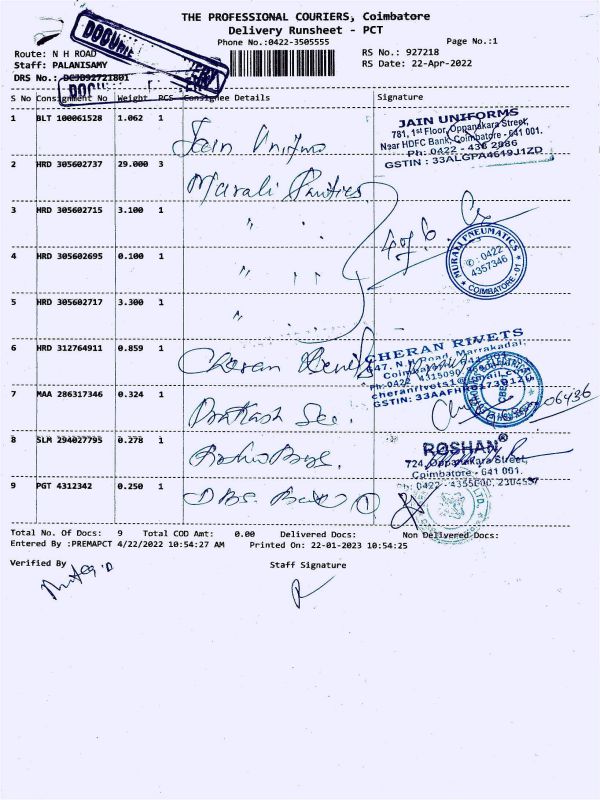 THE PROFESSIONAL COURIERS, Coimbatore
Delivery Runsheet - PCT
Phone No.:0422-3505555
Page No.:1
Route: N H ROAD
RS No.: 927218
Staff: PALANISAMY
RS Date: 22-Apr-2022
DRS No.: DCJD92721801
S No Consignment No Weight PCS Consignee Details Signature
1 BLT 100061528 1.062 1 Jain Uniforms
JAIN UNIFORMS
781, 1st Floor, Oppanakara Street,
Near HDFC Bank, Coimbatore - 641 001.
Ph: 0422 - 436 2986
GSTIN : 33ALGPA4649J1ZD
2 HRD 305602737 29.000 3 Murali
3 HRD 305602715 3.100 1 " "
4 of 6
MURALI PNEUMATICS
✆ : 0422
4357346
COIMBATORE - 01
4 HRD 305602695 0.100 1 " "
5 HRD 305602717 3.300 1 "
6 HRD 312764911 0.859 1 Cheran
CHERAN RIVETS
647, N.H.Road, Marrakadai,
Coimbatore
cheranrivets1@gmail.com
7 MAA 286317346 0.324 1 Prakash
06436
8 SLM 294027795 0.278 1
ROSHAN®
724, Oppanakara Street,
Coimbatore - 641 001.
9 PGT 4312342 0.250 1 DBS Bank 1
Total No. Of Docs: 9 Total COD Amt: 0.00 Delivered Docs: Non Delivered Docs:
Entered By :PREMAPCT 4/22/2022 10:54:27 AM Printed On: 22-01-2023 10:54:25
Verified By
Staff Signature